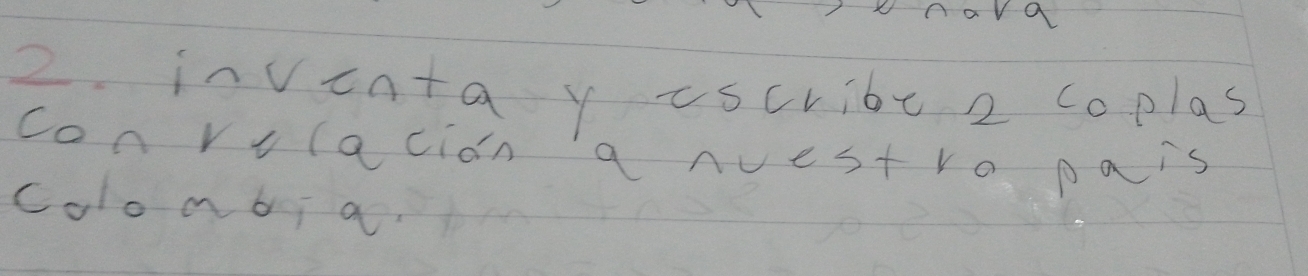 2. inventa y escribe 2 coplas
con relación a nuestro pais
Colombia.